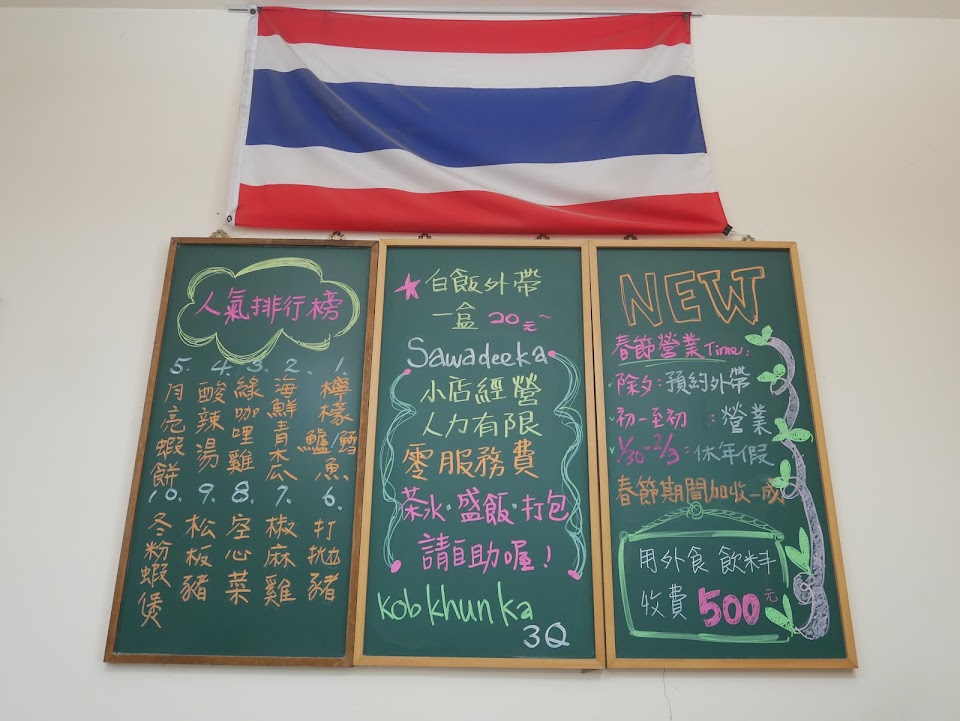 人氣排行榜
1. 檸檬鱸/鱈魚
2. 海鮮青木瓜
3. 綠咖哩雞
4. 酸辣湯
5. 月亮蝦餅
6. 打拋豬
7. 椒麻雞
8. 空心菜
9. 松板豬
10. 冬粉蝦煲
白飯外帶
一盒 20元~
Sawadeeka
小店經營
人力有限
零服務費
茶水·盛飯·打包
請自助喔!
Kob khun ka
3Q
NEW
春節營業Time:
除夕:預約外帶
初一至初 :營業
1/30-2/3:休年假
春節期間加收一成
用外食 飲料
收費 500元